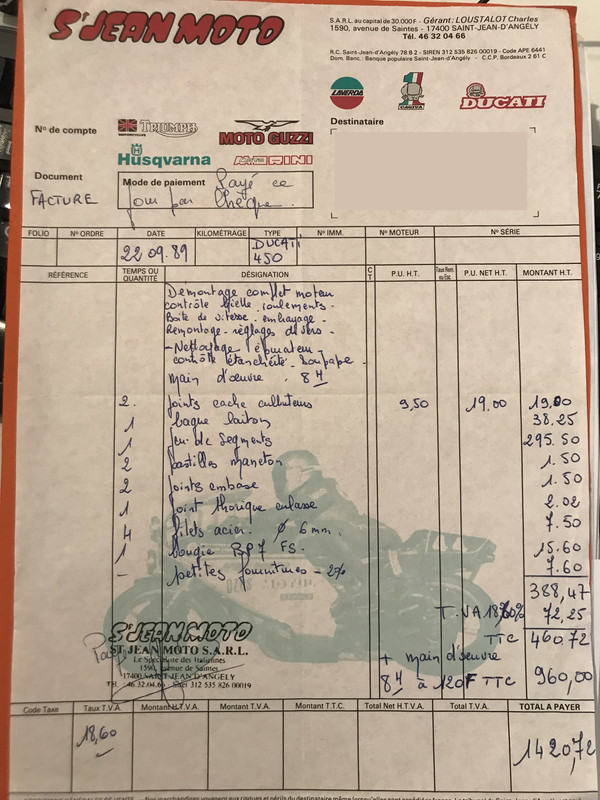 St JEAN MOTO
S.A.R.L. au capital de 30.000 F - Gérant: LOUSTALOT Charles
1590, avenue de Saintes - 17400 SAINT-JEAN-D'ANGÉLY
Tél. 46 32 04 66
R.C. Saint-Jean-d'Angély 78 B 2 - SIREN 312 535 826 00019 - Code APE 6441
Dom. Banc.: Banque populaire Saint-Jean-d'Angély - C.C.P. Bordeaux 2 61 C
LAVERDA CAGIVA DUCATI
N° de compte
TRIUMPH MOTO GUZZI
Husqvarna MORINI
Destinataire
Document
FACTURE
Mode de paiement Payé ce
jour par chèque.
FOLIO N° ORDRE DATE KILOMÉTRAGE TYPE N° IMM. N° MOTEUR N° SÉRIE
22 09.89 DUCATI
450
RÉFÉRENCE TEMPS OU QUANTITÉ DÉSIGNATION C T P.U. H.T. Taux Rem. ou Esc. P.U. NET H.T. MONTANT H.T.
Demontage complet moteur
contrôle bielle. roulements.
Boite de vitesse. embrayage.
Remontage. réglages divers.
- Nettoyage épurateur -
contrôle étanchéité. Soupape.
main d'œuvre . 8 H
2. joints cache culbuteurs 9,50 19,00 19,00
1 bague laiton 38.25
1 jeu de segments 295.50
2 pastilles maneton 1.50
2 joints embase 1.50
1 joint thorique culasse 2.02
4 filets acier. Ø 6 mm. 7.50
1 bougie BP7 FS. 15.60
- petites fournitures - 2% 7.60
388,47
T.VA 18,60% 72,25
TTC 460,72
+ main d'œuvre
8 H à 120F TTC 960,00
St JEAN MOTO
ST JEAN MOTO S.A.R.L.
Le Spécialiste des Italiennes
1590, avenue de Saintes
17400 SAINT JEAN D'ANGELY
Tél. 46.32.04.66 Siret 312 535 826 00019
Code Taxe Taux T.V.A. Montant H.T.V.A. Montant T.V.A. Montant T.T.C. Total Net H.T.V.A. Total T.V.A. TOTAL A PAYER
18,60
1420,72